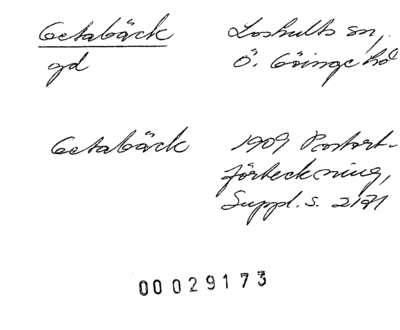 Getabäck Loshults sn,
gd Ö. Göinge hd
Getabäck 1909 Postort-
förteckning,
Suppl. s. 2171
00029173